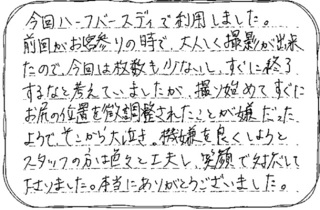 今回ハーフバースディで利用しました。
前回がお宮参りの時で、大人しく撮影が出来
たので、今回は枚数も少ないし、すぐに終了
するなと考えていましたが、撮り始めてすぐに
お尻の位置を微調整されたことが嫌だった
ようで、そこから大泣き。機嫌を良くしようと
スタッフの方は色々と工夫し、笑顔で対応して
下さりました。本当にありがとうございました。